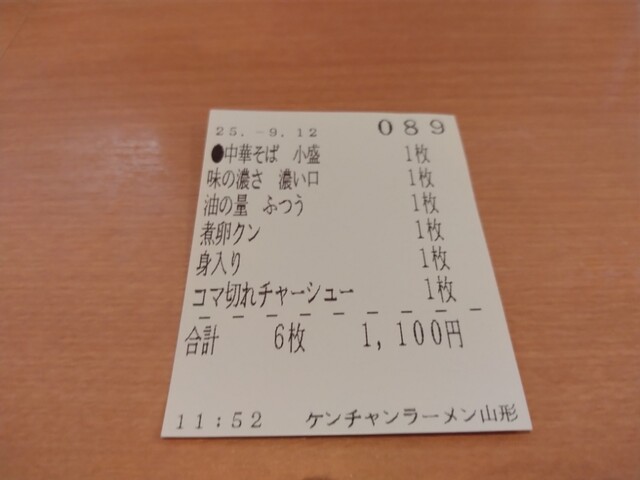 25.-9.12 089
●中華そば 小盛 1枚
味の濃さ 濃い口 1枚
油の量 ふつう 1枚
煮卵クン 1枚
身入り 1枚
コマ切れチャーシュー 1枚
合計 6枚 1,100円
11:52 ケンチャンラーメン山形